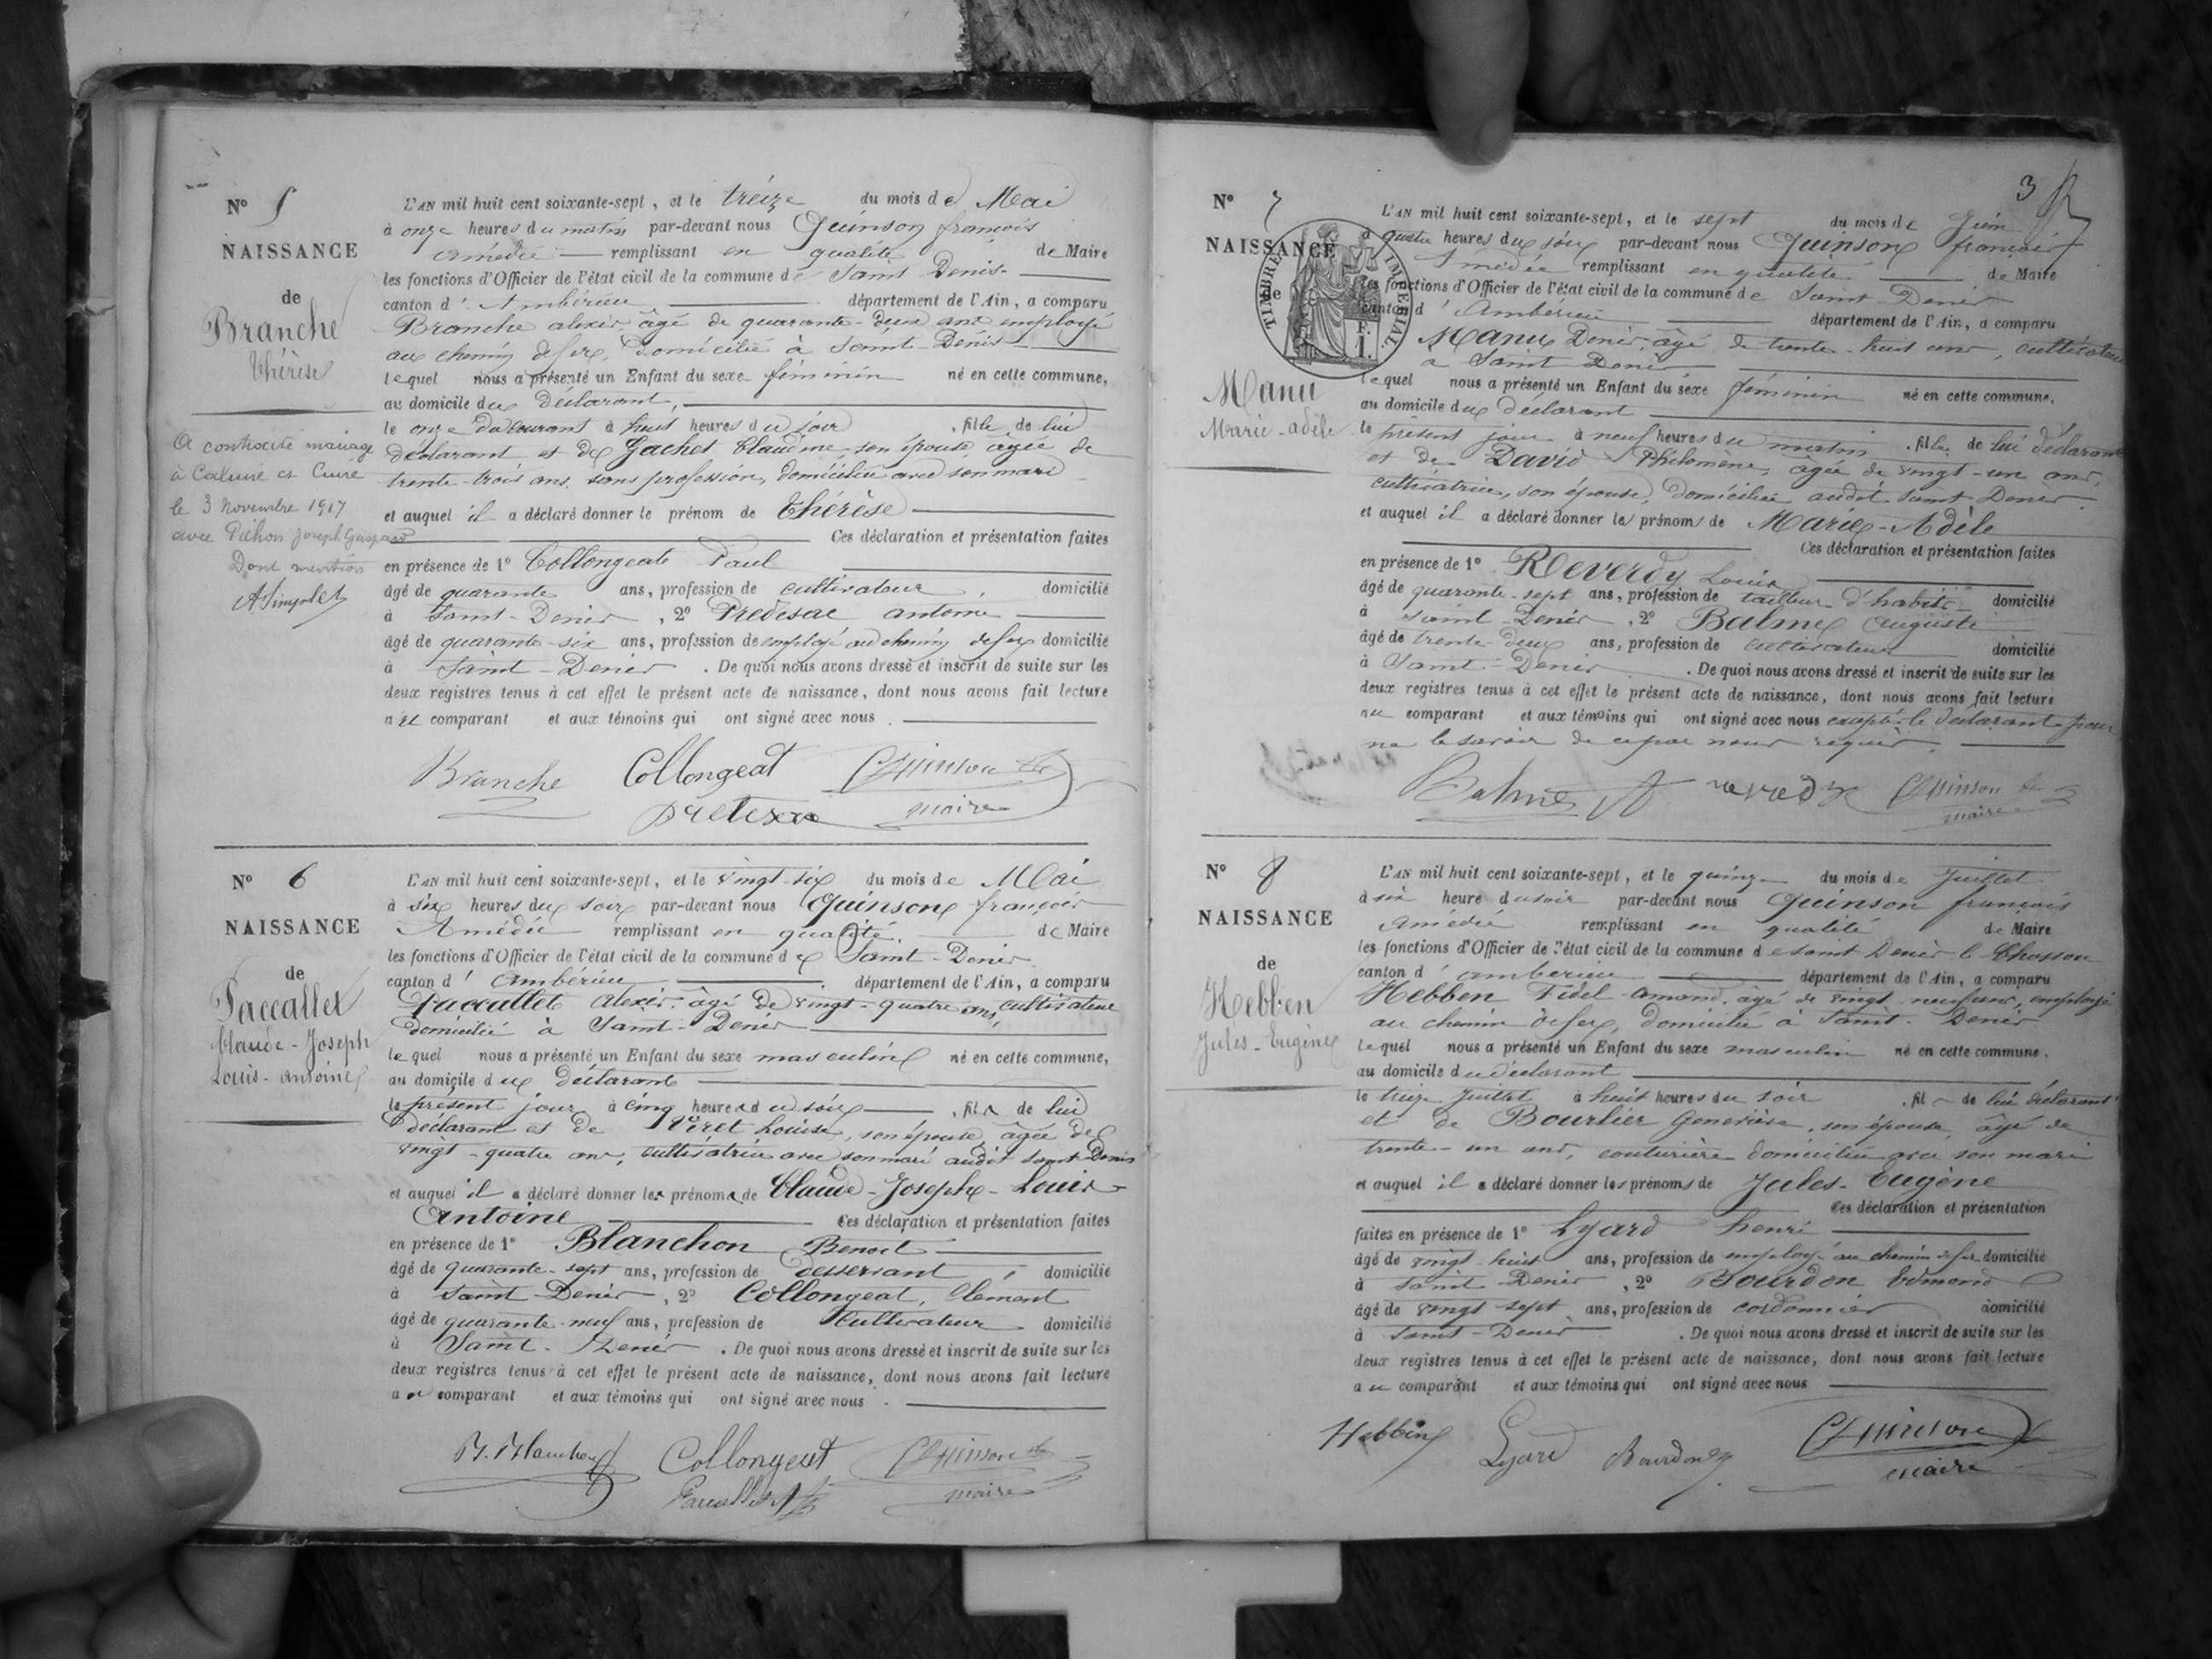 N° 5
NAISSANCE
de
Branche
Thérèse
A contracté mariage
à Caluire et Cuire
le 3 Novembre 1917
avec Pichon Joseph Gaspard
Dont mention
L'AN mil huit cent soixante-sept, et le treize du mois de Mai
à onze heures du matin par-devant nous Quinson françois
Amédée remplissant en qualité de Maire
les fonctions d'Officier de l'état civil de la commune de Saint Denis
canton d' Ambérieu département de l'Ain, a comparu
Branche alexis, âgé de quarante-deux ans employé
au chemin de fer, domicilié à Saint-Denis
lequel nous a présenté un Enfant du sexe féminin né en cette commune,
au domicile du déclarant,
le onze du courant à huit heures du soir, fille de lui
déclarant et de Gachet Claudine, son épouse âgée de
trente-trois ans, sans profession, domiciliée avec son mari
et auquel il a déclaré donner le prénom de Thérèse
Ces déclaration et présentation faites
en présence de 1° Collongeat Paul
âgé de quarante ans, profession de cultivateur, domicilié
à Saint-Denis, 2° Predesac antoine
âgé de quarante-six ans, profession de employé au chemin de fer domicilié
à Saint-Denis. De quoi nous avons dressé et inscrit de suite sur les
deux registres tenus à cet effet le présent acte de naissance, dont nous avons fait lecture
au comparant et aux témoins qui ont signé avec nous.
Branche Collongeat Quinson
maire
N° 6
NAISSANCE
de
Paccallet
Claude-Joseph
Louis-antoine
L'AN mil huit cent soixante-sept, et le vingt-six du mois de Mai
à six heures du soir par-devant nous Quinson françois
Amédée remplissant en qualité de Maire
les fonctions d'Officier de l'état civil de la commune de Saint-Denis
canton d' Ambérieu département de l'Ain, a comparu
Paccallet Alexis, âgé de vingt-quatre ans, cultivateur
domicilié à Saint-Denis
lequel nous a présenté un Enfant du sexe masculin né en cette commune,
au domicile du déclarant
le présent jour à cinq heures du soir, fils de lui
déclarant et de Viret Louise, son épouse, âgée de
vingt-quatre ans, cultivatrice avec son mari audit Saint-Denis
et auquel il a déclaré donner les prénoms de Claude-Joseph-Louis-
Antoine Ces déclaration et présentation faites
en présence de 1° Blanchon Benoit
âgé de quarante-sept ans, profession de desservant, domicilié
à Saint-Denis, 2° Collongeat, Clément
âgé de quarante-neuf ans, profession de Cultivateur domicilié
à Saint-Denis. De quoi nous avons dressé et inscrit de suite sur les
deux registres tenus à cet effet le présent acte de naissance, dont nous avons fait lecture
au comparant et aux témoins qui ont signé avec nous.
B. Blanchon Collongeat Quinson
Paccallet maire
3
N° 7
NAISSANCE
de
TIMBRE IMPERIAL
1 F.
Manu
Marie-adèle
L'AN mil huit cent soixante-sept, et le sept du mois de Juin
à quatre heures du soir par-devant nous Quinson françois
Amédée remplissant en qualité de Maire
les fonctions d'Officier de l'état civil de la commune de Saint-Denis
canton d' Ambérieu département de l'Ain, a comparu
Manu Denis, âgé de trente-huit ans, cultivateur
a Saint Denis
lequel nous a présenté un Enfant du sexe féminin né en cette commune,
au domicile du déclarant
le présent jour à neuf heures du matin, fille de lui déclarant
et de David Philomène, âgée de vingt-un ans,
cultivatrice, son épouse, domiciliée audit Saint-Denis
et auquel il a déclaré donner les prénoms de Marie-Adèle
Ces déclaration et présentation faites
en présence de 1° Reverdy Louis
âgé de quarante-sept ans, profession de tailleur d'habits domicilié
à Saint-Denis, 2° Balme Auguste
âgé de trente-deux ans, profession de cultivateur domicilié
à Saint-Denis. De quoi nous avons dressé et inscrit de suite sur les
deux registres tenus à cet effet le présent acte de naissance, dont nous avons fait lecture
au comparant et aux témoins qui ont signé avec nous excepté le déclarant pour
ne le savoir de ce par nous requis.
Balme reverdy Quinson
maire
N° 8
NAISSANCE
de
Hebben
Jules-Eugène
L'AN mil huit cent soixante-sept, et le quinze du mois de Juillet
à six heure du soir par-devant nous Quinson françois
Amédée remplissant en qualité de Maire
les fonctions d'Officier de l'état civil de la commune de Saint Denis le Chosson
canton d' ambérieu département de l'Ain, a comparu
Hebben Fidel-amand, âgé de vingt-neuf ans, employé
au chemin de fer, domicilié à Saint-Denis
lequel nous a présenté un Enfant du sexe masculin né en cette commune.
au domicile du déclarant
le treize Juillet à huit heures du soir, fils de lui déclarant
et de Bourlier Geneviève, son épouse, âgé de
trente-un ans, couturière domiciliée avec son mari
et auquel il a déclaré donner les prénoms de Jules-Eugène
Ces déclaration et présentation
faites en présence de 1° Lyard henri
âgé de vingt-huit ans, profession de employé au chemin de fer domicilié
à Saint-Denis, 2° Bourdon Edmond
âgé de vingt-sept ans, profession de cordonnier domicilié
à Saint-Denis. De quoi nous avons dressé et inscrit de suite sur les
deux registres tenus à cet effet le présent acte de naissance, dont nous avons fait lecture
au comparant et aux témoins qui ont signé avec nous
Hebbin Lyard Bourdon Quinson
maire